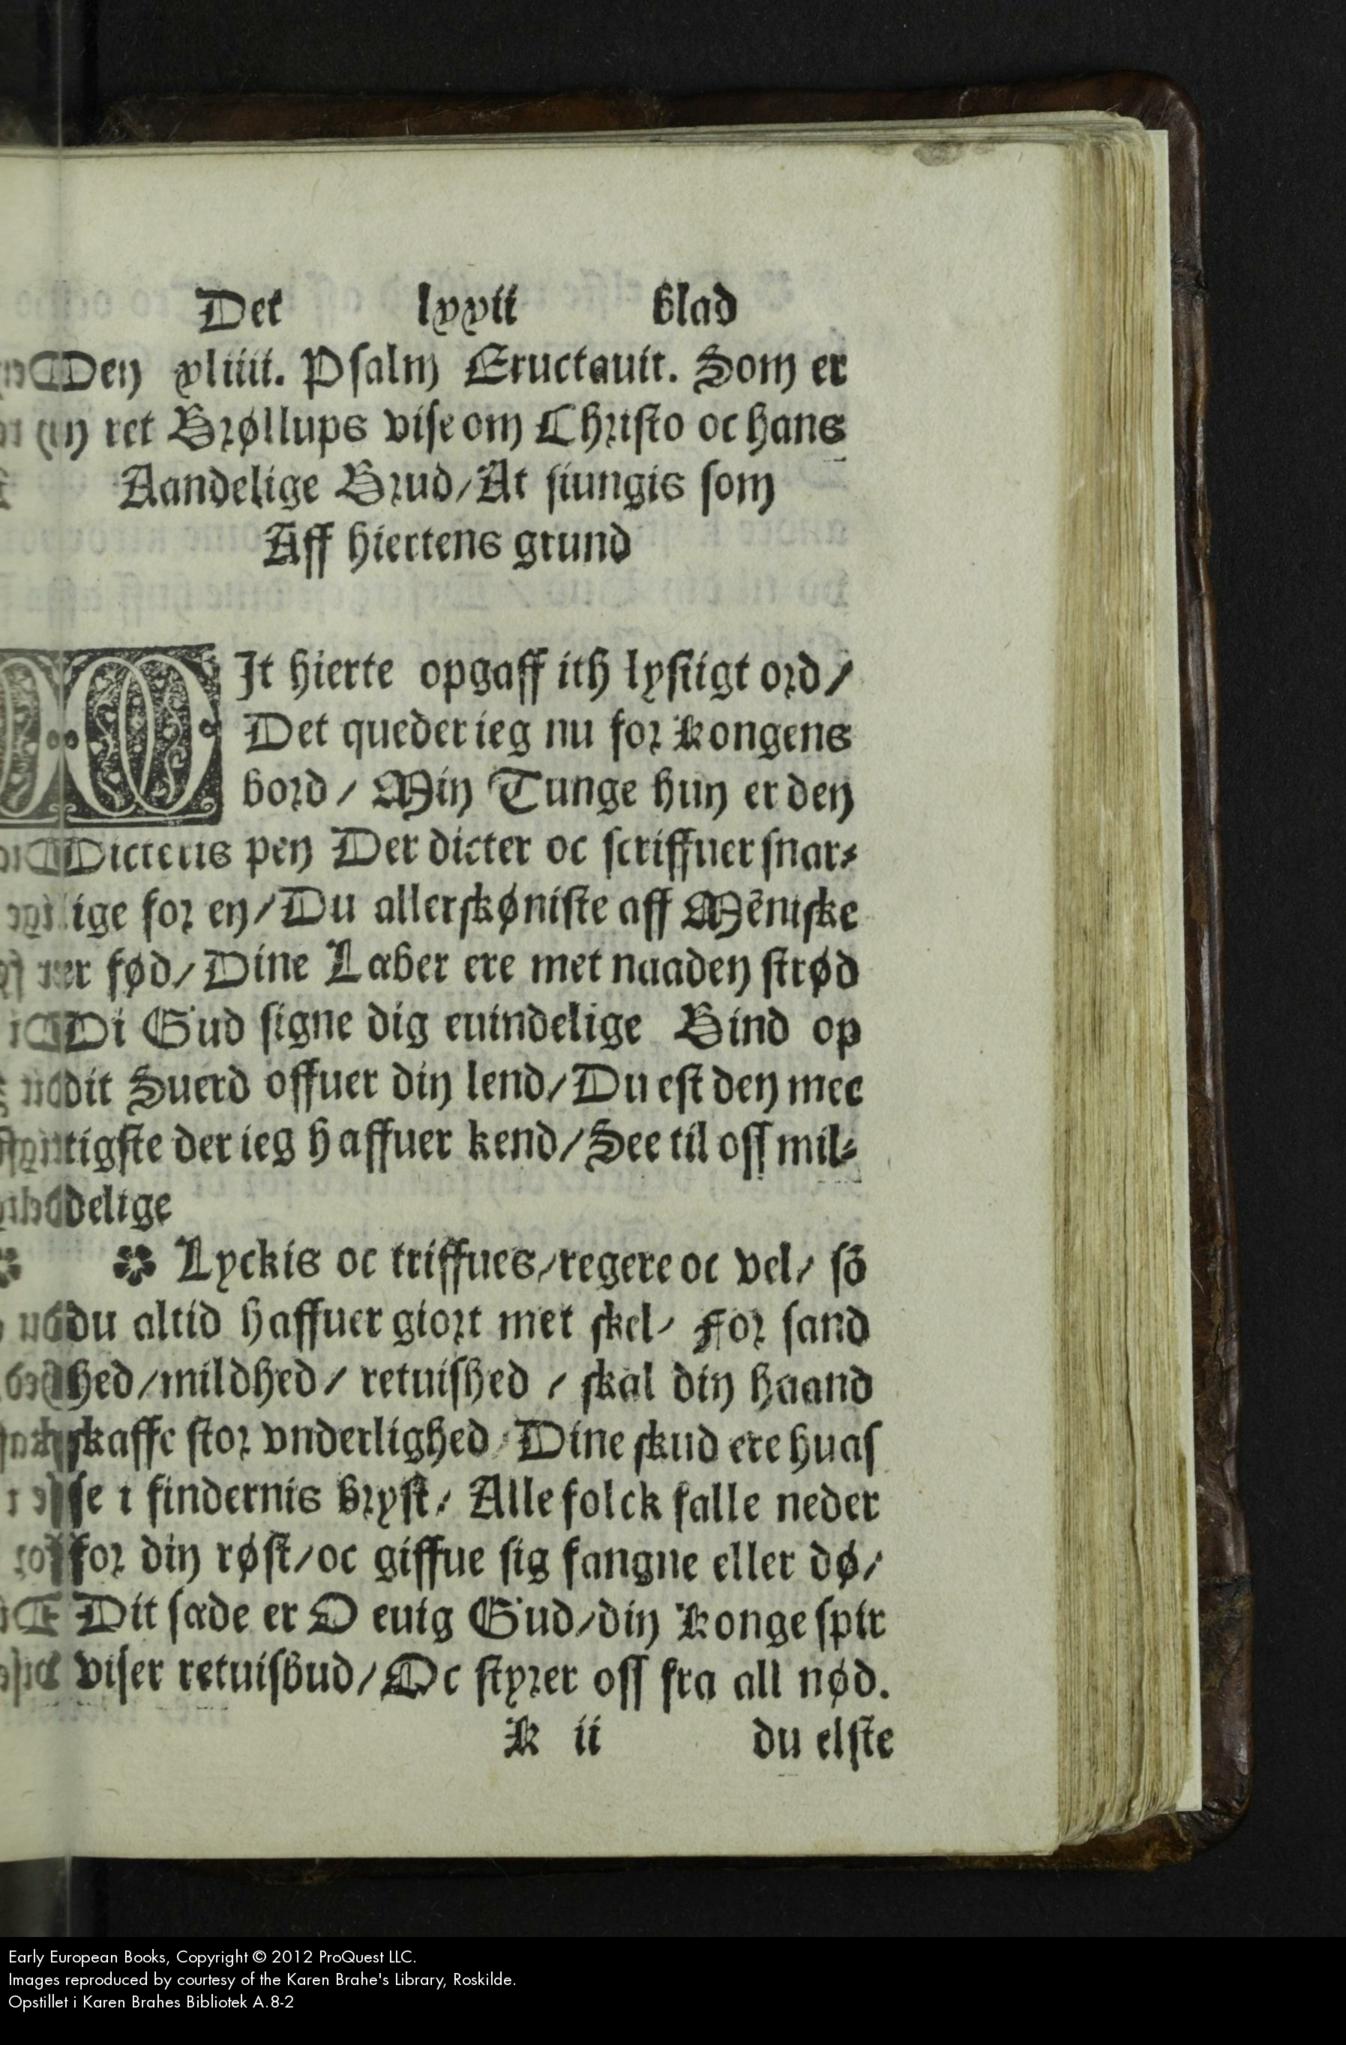 Det lxxii blad
Den xliiii. Psalm Eructauit. Som er
ret Brøllups vise om Christo oc hans
Aandelige Brud/At siungis som
Aff hiertens grund
MJt hierte opgaff ith lystigt ord/
Det queder ieg nu for Kongens
bord/ Min Tunge hun er den
Dicteris pen Der dicter oc scriffuer snar⸗
lige for en/Du allerskøniste aff Mẽniske
er fød/Dine Læber ere met naaden strød
Di Gud signe dig euindelige Bind op
dit Suerd offuer din lend/Du est den mec
tigste der ieg haffuer kend/See til oss mil⸗
delige
✽ Lyckis oc triffues/regere oc vel/ sõ
du altid haffuer giort met skel/ For sand
hed/mildhed/ retuished / skal din haand
skaffe stor vnderlighed/Dine skud ere huas
se i findernis bryst/ Alle folck falle neder
for din røst/oc giffue sig fangne eller dø/
Dit sæde er O euig Gud/din Konge spir
viser retuisbud/Oc styrer oss fra all nød.
K ii du elste
Early European Books, Copyright © 2012 ProQuest LLC.
Images reproduced by courtesy of the Karen Brahe's Library, Roskilde.
Opstillet i Karen Brahes Bibliotek A.8-2